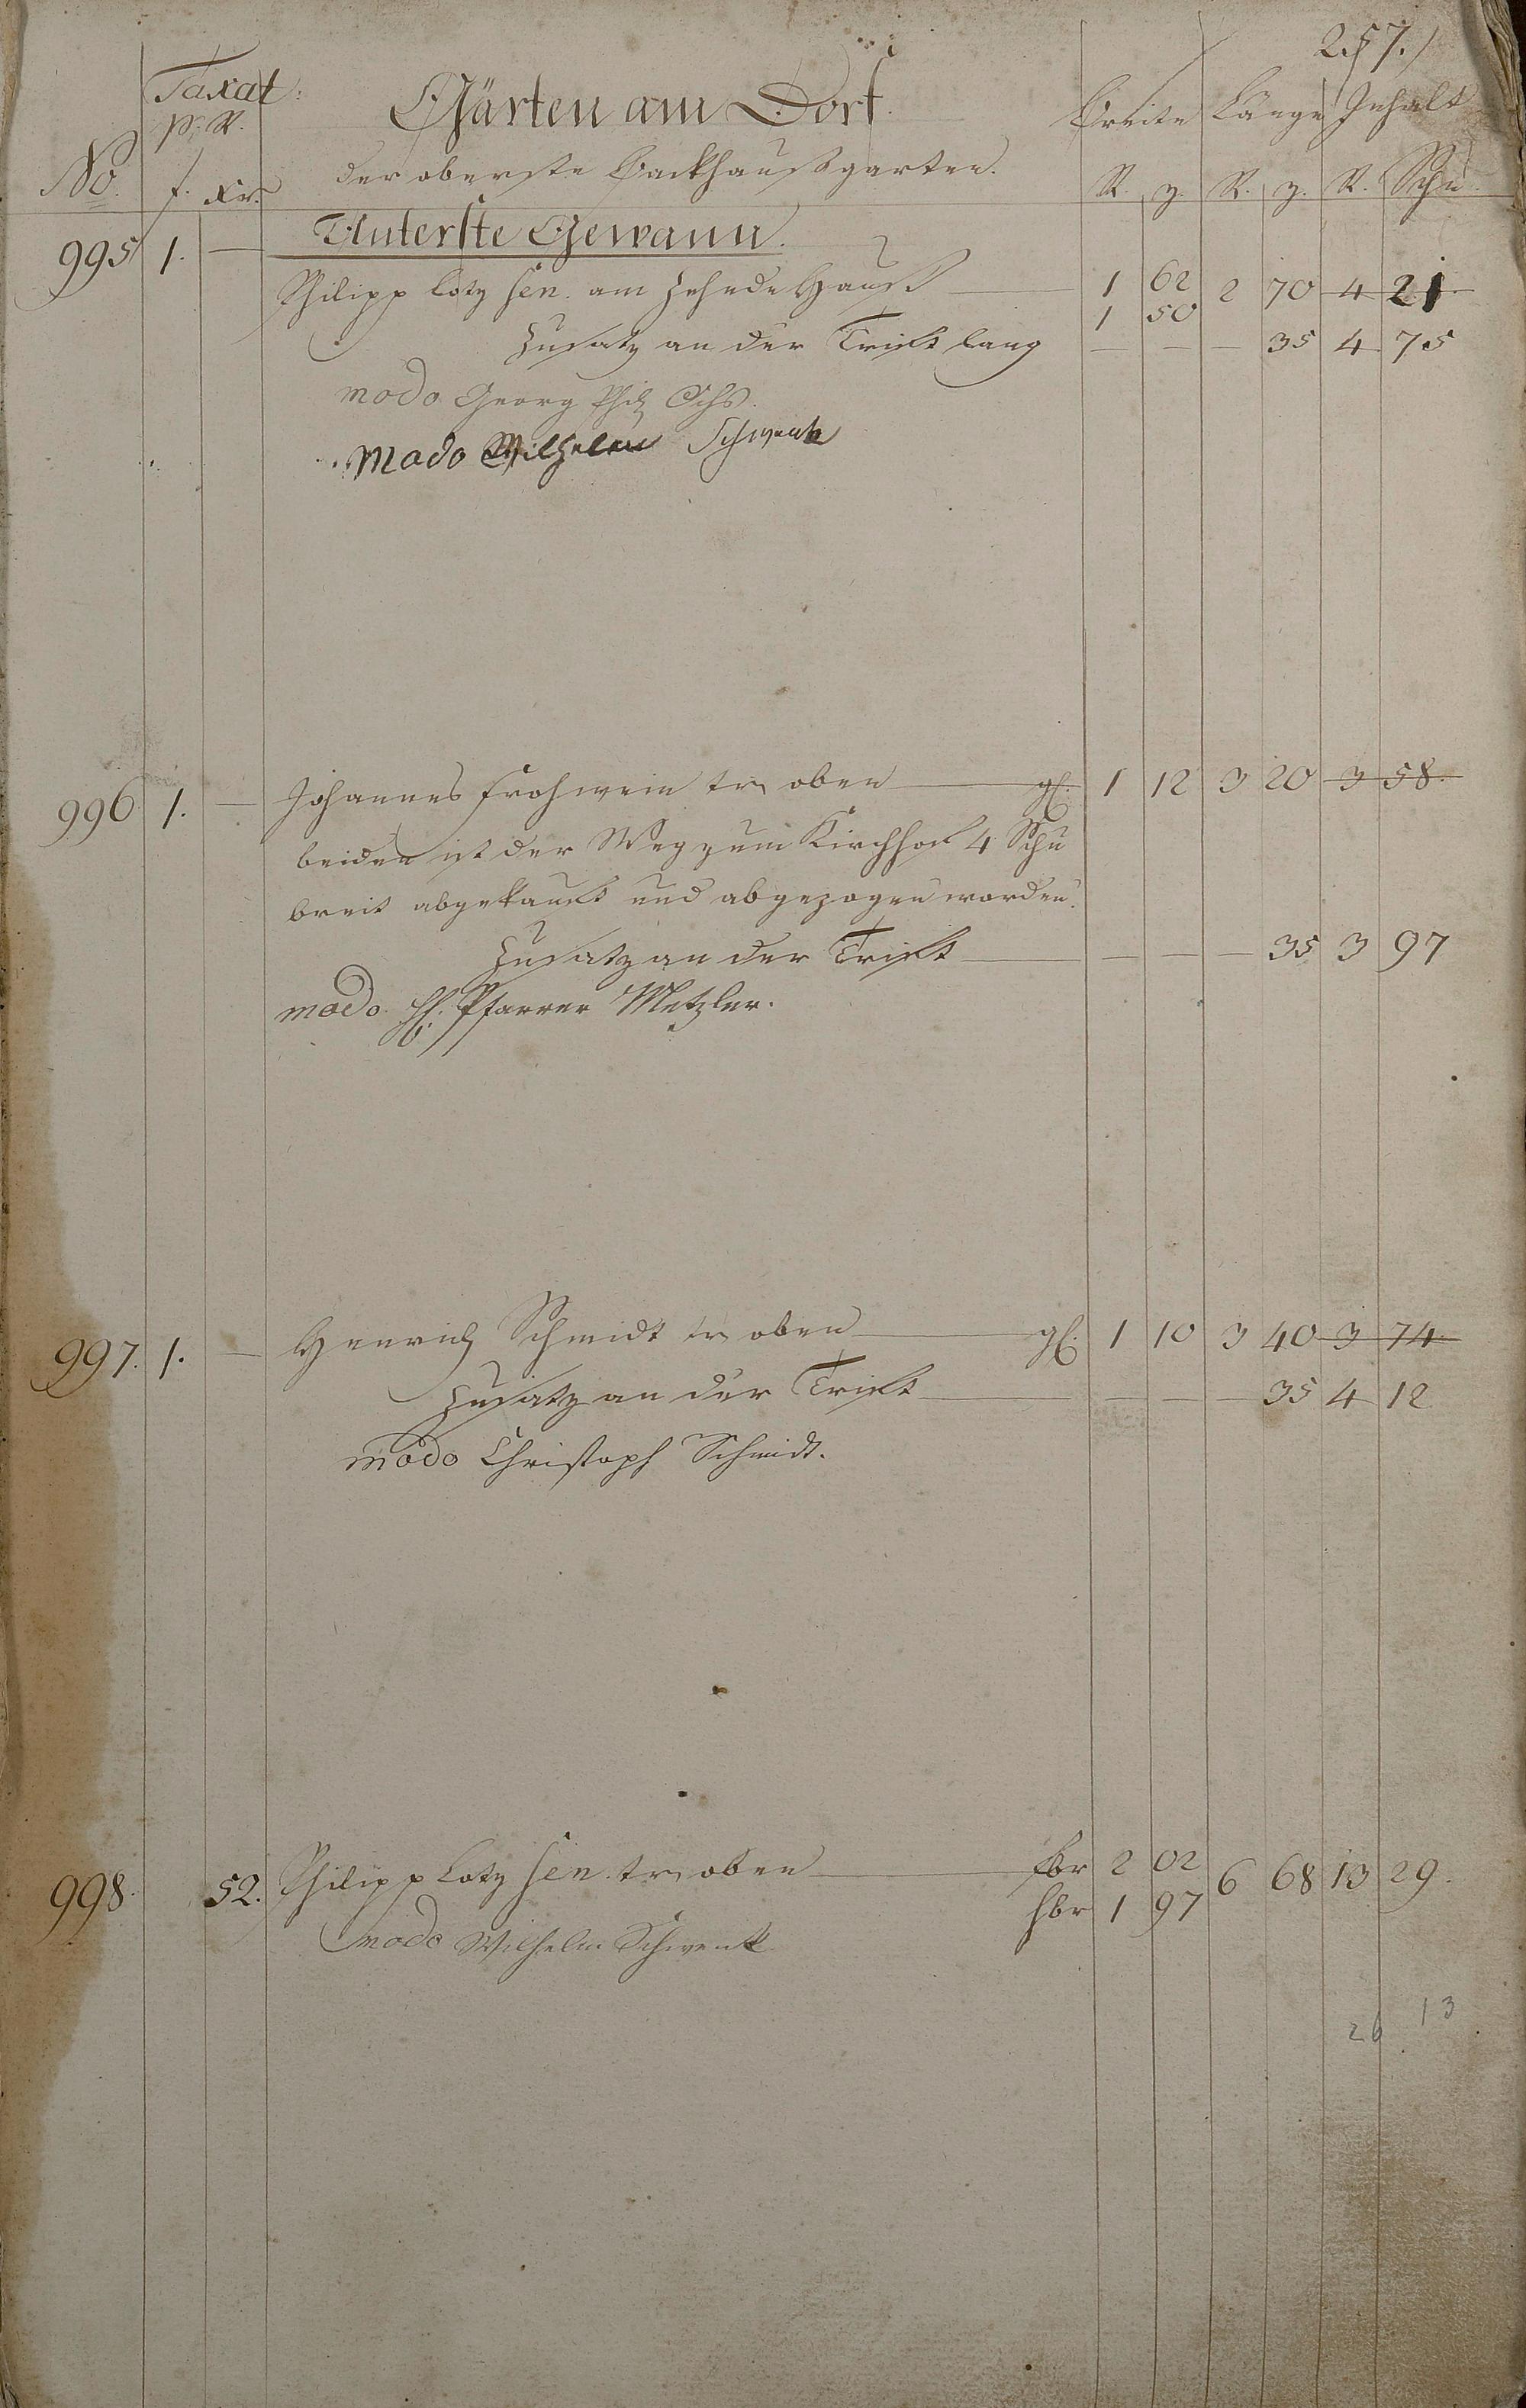 257.
Taxat: Gärten am Dorf. Breite Länge Inhalt
p. R.
No. f. xr. der oberste Backhaußgarten. R. z. R. z. R. Schu
Unterste Gewann.
995 1. — Philipp Lotz sen. am Zehnde Hauß — 1 62 2 70 4 21
1 50
Zusatz an der Trift lang — — — 35 4 75
modo Georg Phil Ochs.
Modo Wilhelm Schwenk
996 1. — Johannes Frohwein trs oben — gl. 1 12 3 20 3 58.
beiden ist der Weg zum Kirchhof 4 Schu
breit abgekauft und abgezogen worden.
Zusatz an der Trift — — — — 35 3 97
modo. H. Pfarrer Metzler.
997. 1. — Henrich Schmidt trs oben — gl. 1 10 3 40 3 74
Zusatz an der Trift — — — — 35 4 12
modo Christoph Schmidt.
998. 52. Philipp Lotz sen. trs oben — fbr 2 02 6 68 13 29.
hbr 1 97
modo Wilhelm Schwenk
26 13